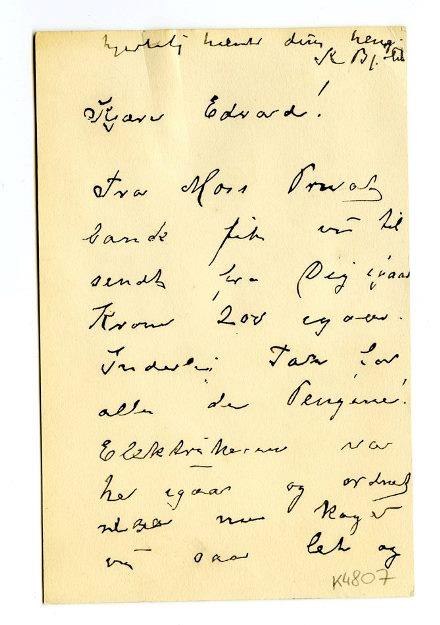 hjertelig
K Bj.
Kjære Edvard!
Fra Moss Privat
bank fik vi til
sendt fra Dig igaar
Kroner 200 igaar.
Inderlig Tak for
alle de Pengene!
Elektrikeren var
her igaar og ordnet
nu koger
vi saa let og
K4807